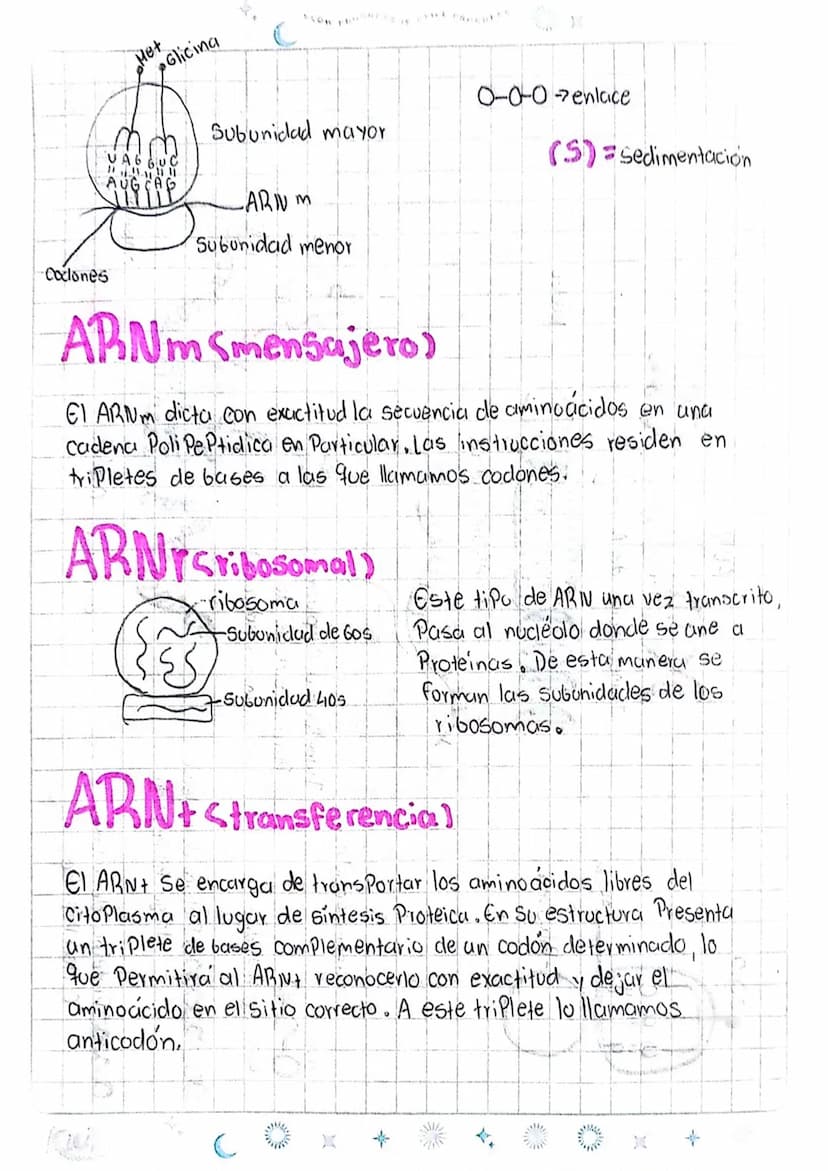 Met
Glicina
O-O-O → enlace
Subunidad mayor
(S) = sedimentación
UAC GUC
AUG CAG
ARN m
Subunidad menor
Codones
ARNm (mensajero)
El ARNm dicta con exactitud la secuencia de aminoácidos en una
cadena PoliPePtidica en Particular. Las instrucciones residen en
triPletes de bases a las que llamamos codones.
ARNr (ribosomal)
ribosoma
Subunidad de 60s
Subunidad 40s
Este tipo de ARN una vez transcrito,
Pasa al nucléolo donde se une a
Proteínas. De esta manera se
forman las subunidades de los
ribosomas.
ARNt (transferencia)
El ARNt Se encarga de transPortar los aminoácidos libres del
CitoPlasma al lugar de síntesis Proteica. En su estructura Presenta
un triPlete de bases complementario de un codón determinado, lo
que Permitirá al ARNt reconocerlo con exactitud y dejar el
aminoácido en el sitio correcto. A este triPlete lo llamamos
anticodón.